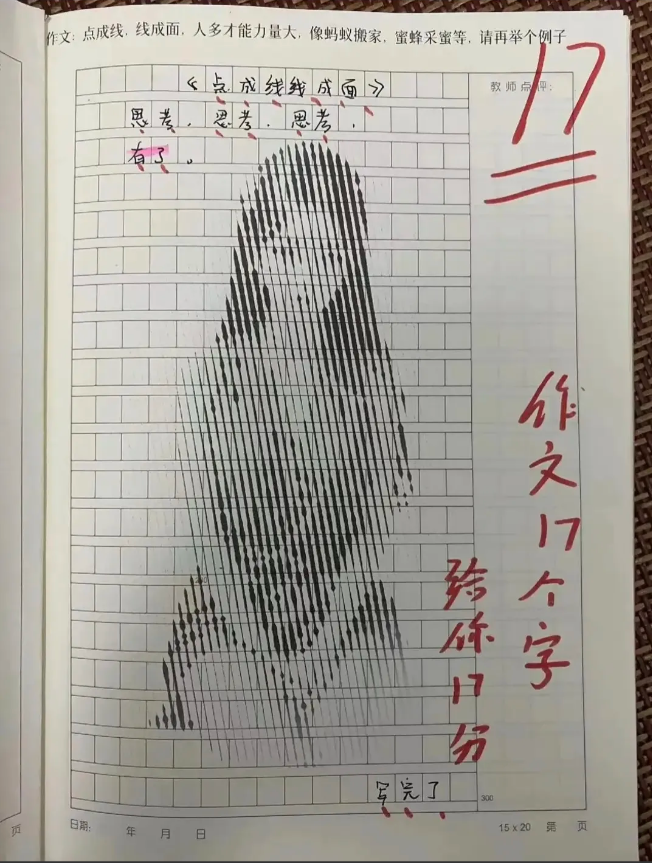 作文：点成线，线成面，人多才能力量大，像蚂蚁搬家，蜜蜂采蜜等，请再举个例子
17
教师点评：
《点成线线成面》
思考，思考，思考，
有了。
作文17个字
给你17分
写完了
300
日期： 年 月 日
15×20 第 页
页